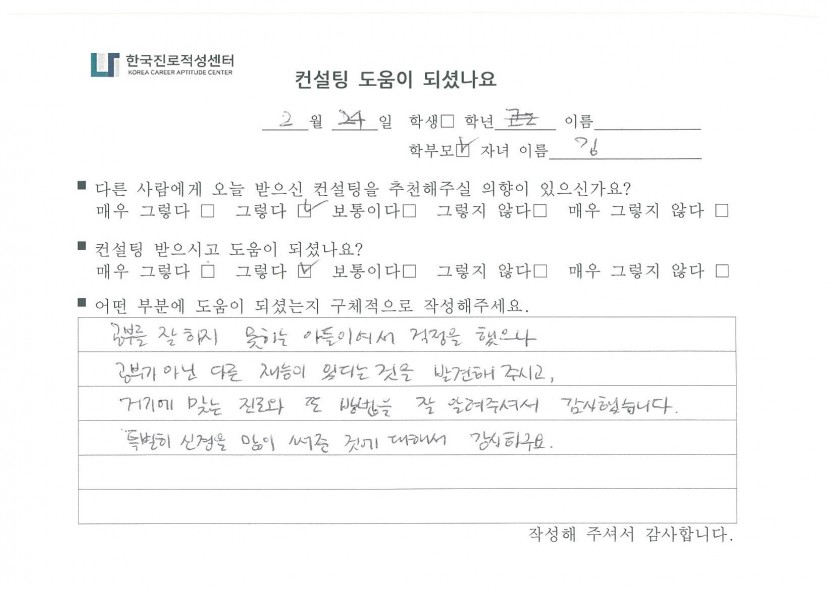 한국진로적성센터
KOREA CAREER APTITUDE CENTER
컨설팅 도움이 되셨나요
2 월 24 일 학생□ 학년 이름
학부모☑ 자녀 이름 김
■ 다른 사람에게 오늘 받으신 컨설팅을 추천해주실 의향이 있으신가요?
매우 그렇다 □ 그렇다 ☑ 보통이다□ 그렇지 않다□ 매우 그렇지 않다 □
■ 컨설팅 받으시고 도움이 되셨나요?
매우 그렇다 □ 그렇다 ☑ 보통이다□ 그렇지 않다□ 매우 그렇지 않다 □
■ 어떤 부분에 도움이 되셨는지 구체적으로 작성해주세요.
공부를 잘 하지 못하는 아들이여서 걱정을 했으나
공부가 아닌 다른 재능이 있다는 것을 발견해 주시고,
거기에 맞는 진로와 또 방법을 잘 알려주셔서 감사했습니다.
특별히 신경을 많이 써준 것에 대해서 감사하구요.
작성해 주셔서 감사합니다.